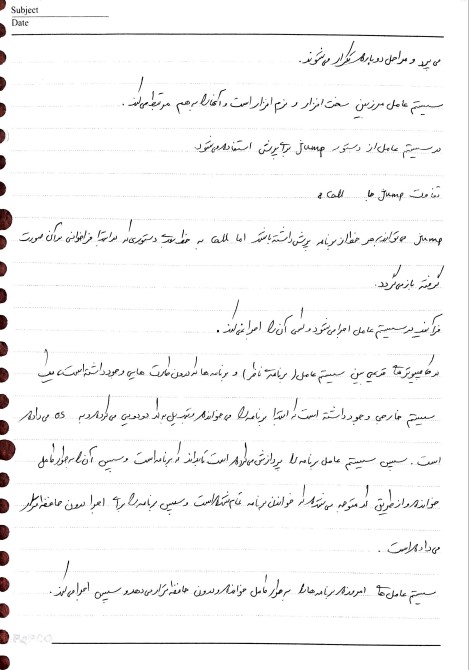 Subject
Date
می‌برد و مراحل دوباره تکرار می‌شوند.
سیستم عامل مرز بین سخت افزار و نرم افزار است و آنها را به هم مرتبط می‌کند.
در سیستم عامل از دستور Jump برای پرش استفاده می‌شود
تفاوت Jump با call ؟
Jump می‌تواند به هر خط از برنامه پرش داشته باشد اما call به خط بعد دستوری که در ابتدا فراخوانی در آن صورت
گرفته باز می‌گردد.
فرآیند در سیستم عامل اجرا می‌شود و کسی آن را اجرا می‌کند.
در کامپیوترهای قدیمی بین سیستم عامل (برنامه ناظر) و برنامه ها که درون کارت هایی وجود داشته است، یک
سیستم خارجی وجود داشته است که ابتدا برنامه را می‌خوانده و تبدیل به کد دودویی می‌کرده و به OS می‌داده
است. سپس سیستم عامل برنامه را پردازش می‌کرده است تا بداند که برنامه است و سپس آن را به طور کامل
خوانده و از طریق کد متوجه می‌شده که خواندن برنامه تمام شده است و سپس برنامه را برای اجرا درون حافظه قرار
می‌داده است.
سیستم عامل های امروزی برنامه ها را به طور کامل خوانده و درون حافظه قرار می‌دهد و سپس اجرا می‌کند.